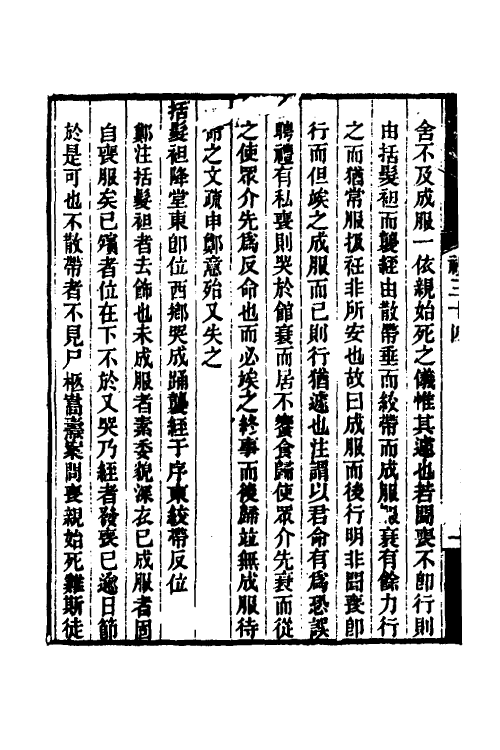 禮三十四
舍不及成服一依親始死之儀惟其遽也若聞喪不卽行則
由括髮袒而襲絰由散帶垂而絞帶而成服衰有餘力行
之而猶常服扱衽非所安也故曰成服而後行明非聞喪卽
行而但竢之成服而已則行猶遽也注謂以君命有爲恐誤
聘禮有私喪則哭於館衰而居不饗食歸使眾介先衰而從
之使眾介先爲反命也而必竢之終事而後歸竝無成服待
命之文疏申鄭意殆又失之
括髮袒降堂東卽位西鄉哭成踊襲絰于序東絞帶反位
鄭注括髮袒者去飾也未成服者素委貌深衣已成服者固
自喪服矣已殯者位在下不於又哭乃絰者發喪已逾日節
於是可也不散帶者不見尸柩嵩燾案問喪親始死雞斯徒